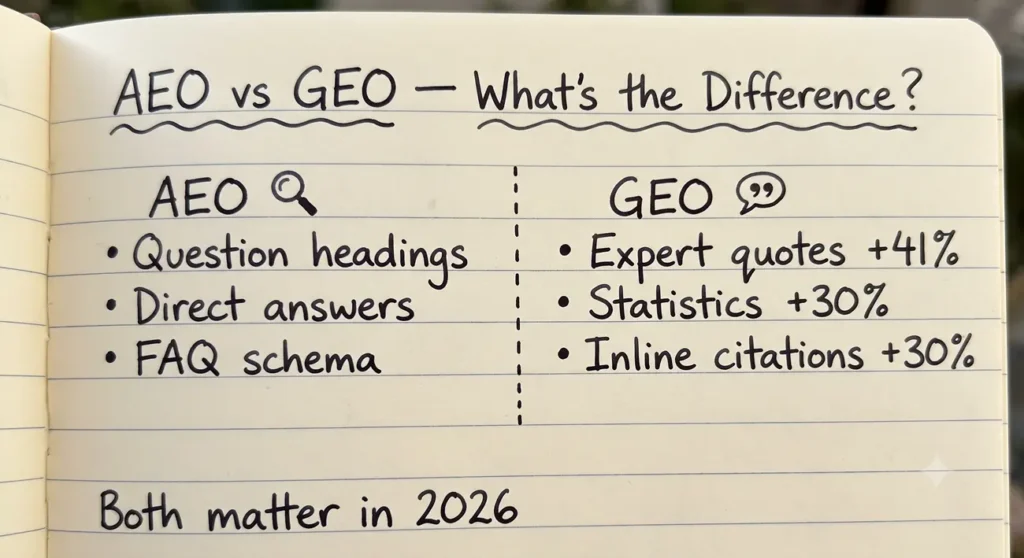 AEO vs GEO — What's the Difference?
AEO
• Question headings
• Direct answers
• FAQ schema
GEO
• Expert quotes +41%
• Statistics +30%
• Inline citations +30%
Both matter in 2026